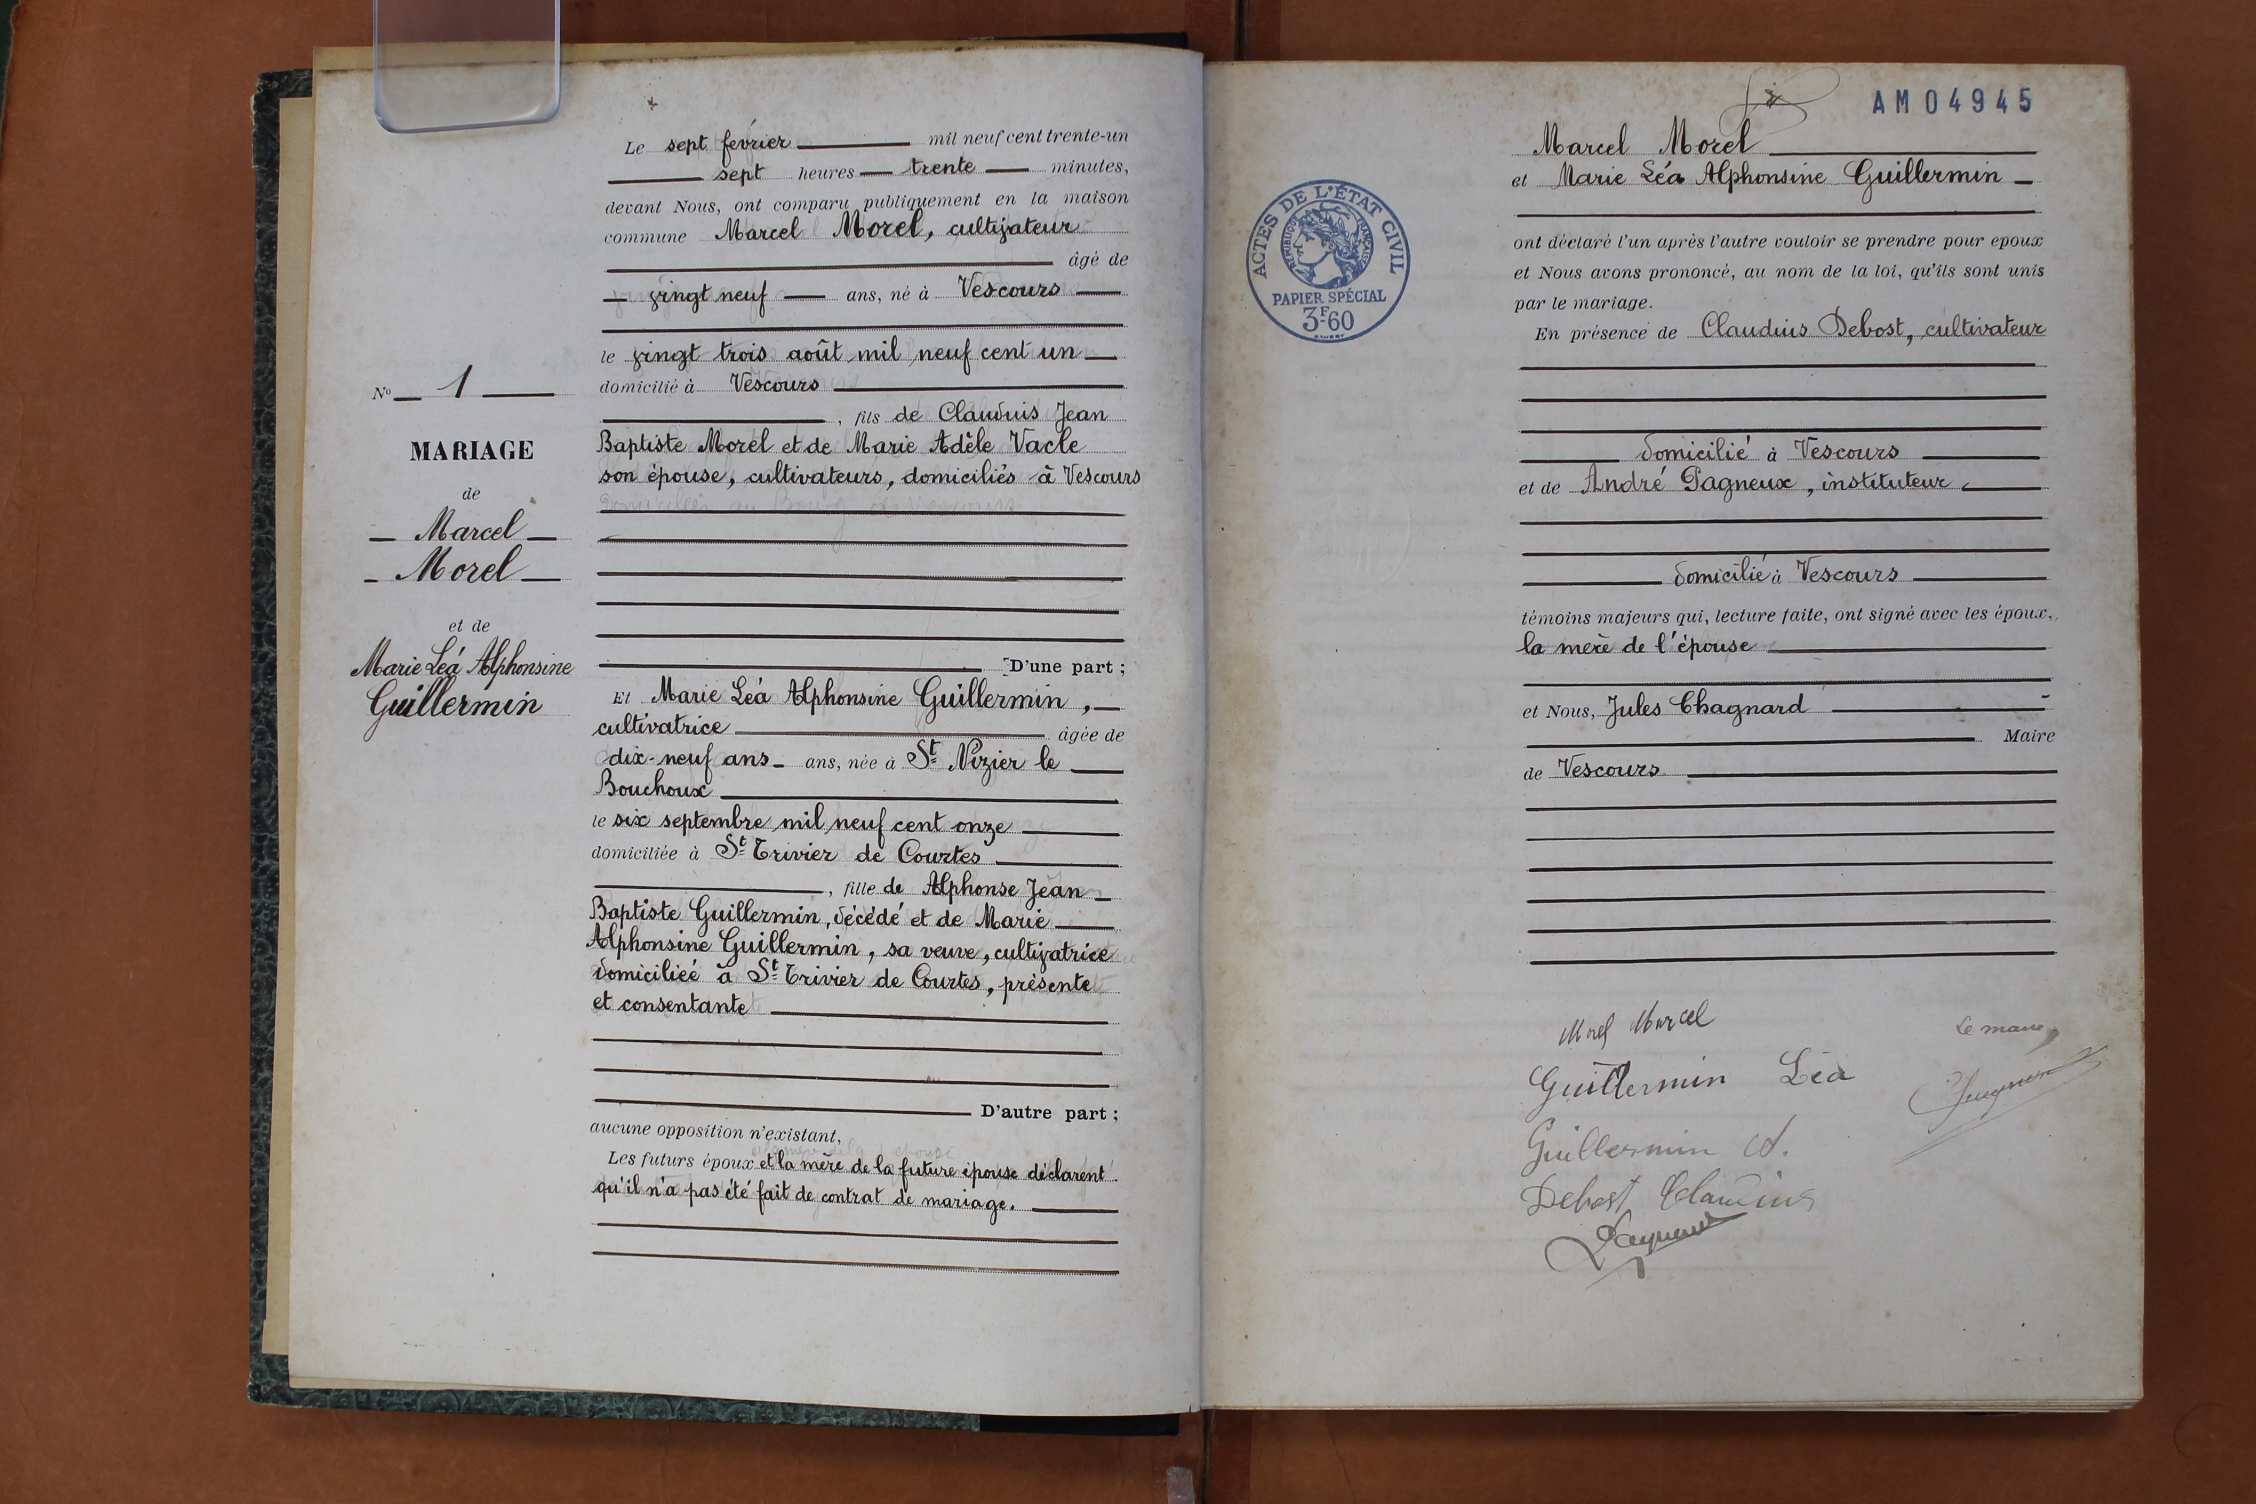 Le sept février mil neuf cent trente-un
sept heures trente minutes,
devant Nous, ont comparu publiquement en la maison
commune Marcel Morel, cultivateur
âgé de
vingt neuf ans, né à Vescours
le vingt trois août mil neuf cent un
domicilié à Vescours
, fils de Claudius Jean
Baptiste Morel et de Marie Adèle Vacle
son épouse, cultivateurs, domiciliés à Vescours
D'une part ;
Et Marie Léa Alphonsine Guillermin,
cultivatrice âgée de
dix-neuf ans ans, née à St Nizier le
Bouchoux
le six septembre mil neuf cent onze
domiciliée à St Trivier de Courtes
, fille de Alphonse Jean
Baptiste Guillermin, décédé et de Marie
Alphonsine Guillermin, sa veuve, cultivatrice
domiciliée à St Trivier de Courtes, présente
et consentante
D'autre part ;
aucune opposition n'existant,
Les futurs époux et la mère de la future épouse déclarent
qu'il n'a pas été fait de contrat de mariage.
No 1
MARIAGE
de
Marcel
Morel
et de
Marie Léa Alphonsine
Guillermin
AM04945
Marcel Morel
et Marie Léa Alphonsine Guillermin
ont déclaré l'un après l'autre vouloir se prendre pour epoux
et Nous avons prononcé, au nom de la loi, qu'ils sont unis
par le mariage.
En présence de Claudius Debost, cultivateur
domicilié à Vescours
et de André Pagneux, instituteur
domicilié à Vescours
témoins majeurs qui, lecture faite, ont signé avec les époux,
la mère de l'épouse
et Nous, Jules Chagnard
Maire
de Vescours
ACTES DE L'ÉTAT CIVIL
RÉPUBLIQUE FRANÇAISE
PAPIER SPÉCIAL
3F60
Morel Marcel
Le maire
Guillermin Léa
Guillermin A.
Debost Claudius
Pagneux